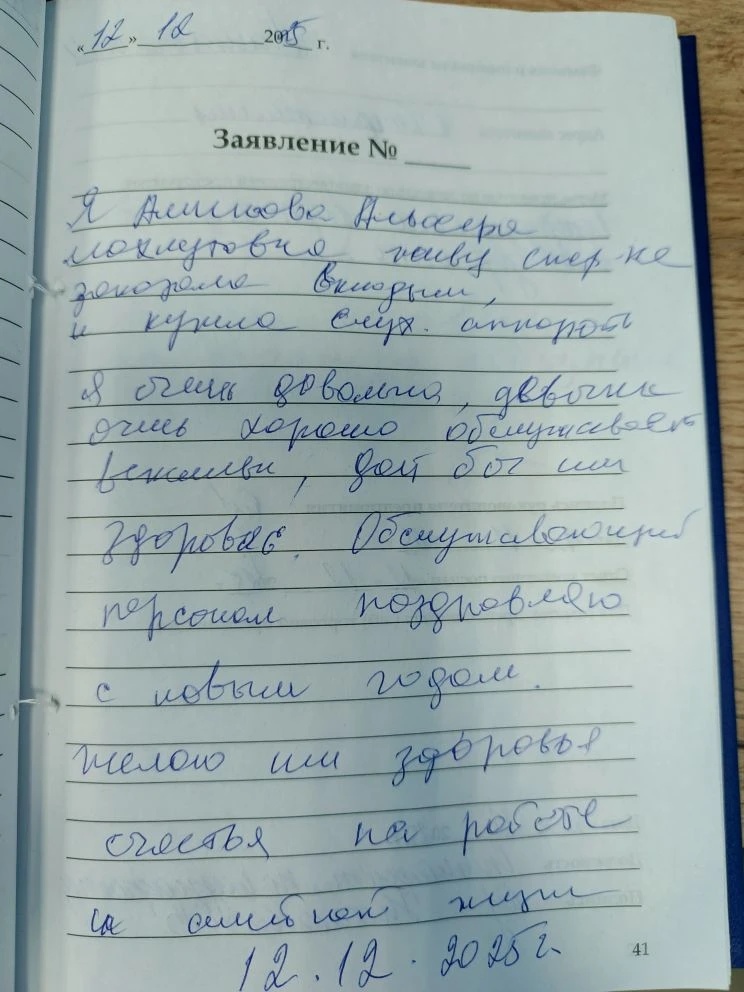 «12» 12 2015 г.
Заявление №
Я Алимова Альфира
Махмутовна живу
заказала вкладыш,
и купила слух. аппараты
я очень довольна, девочки
очень хорошо обслуживают
вежливы, дай бог им
здоровье. Обслуживающий
персонал поздравляю
с новым годом.
желаю им здоровья
счастья на работе
и семейной жизни
12.12.2025 г.
41